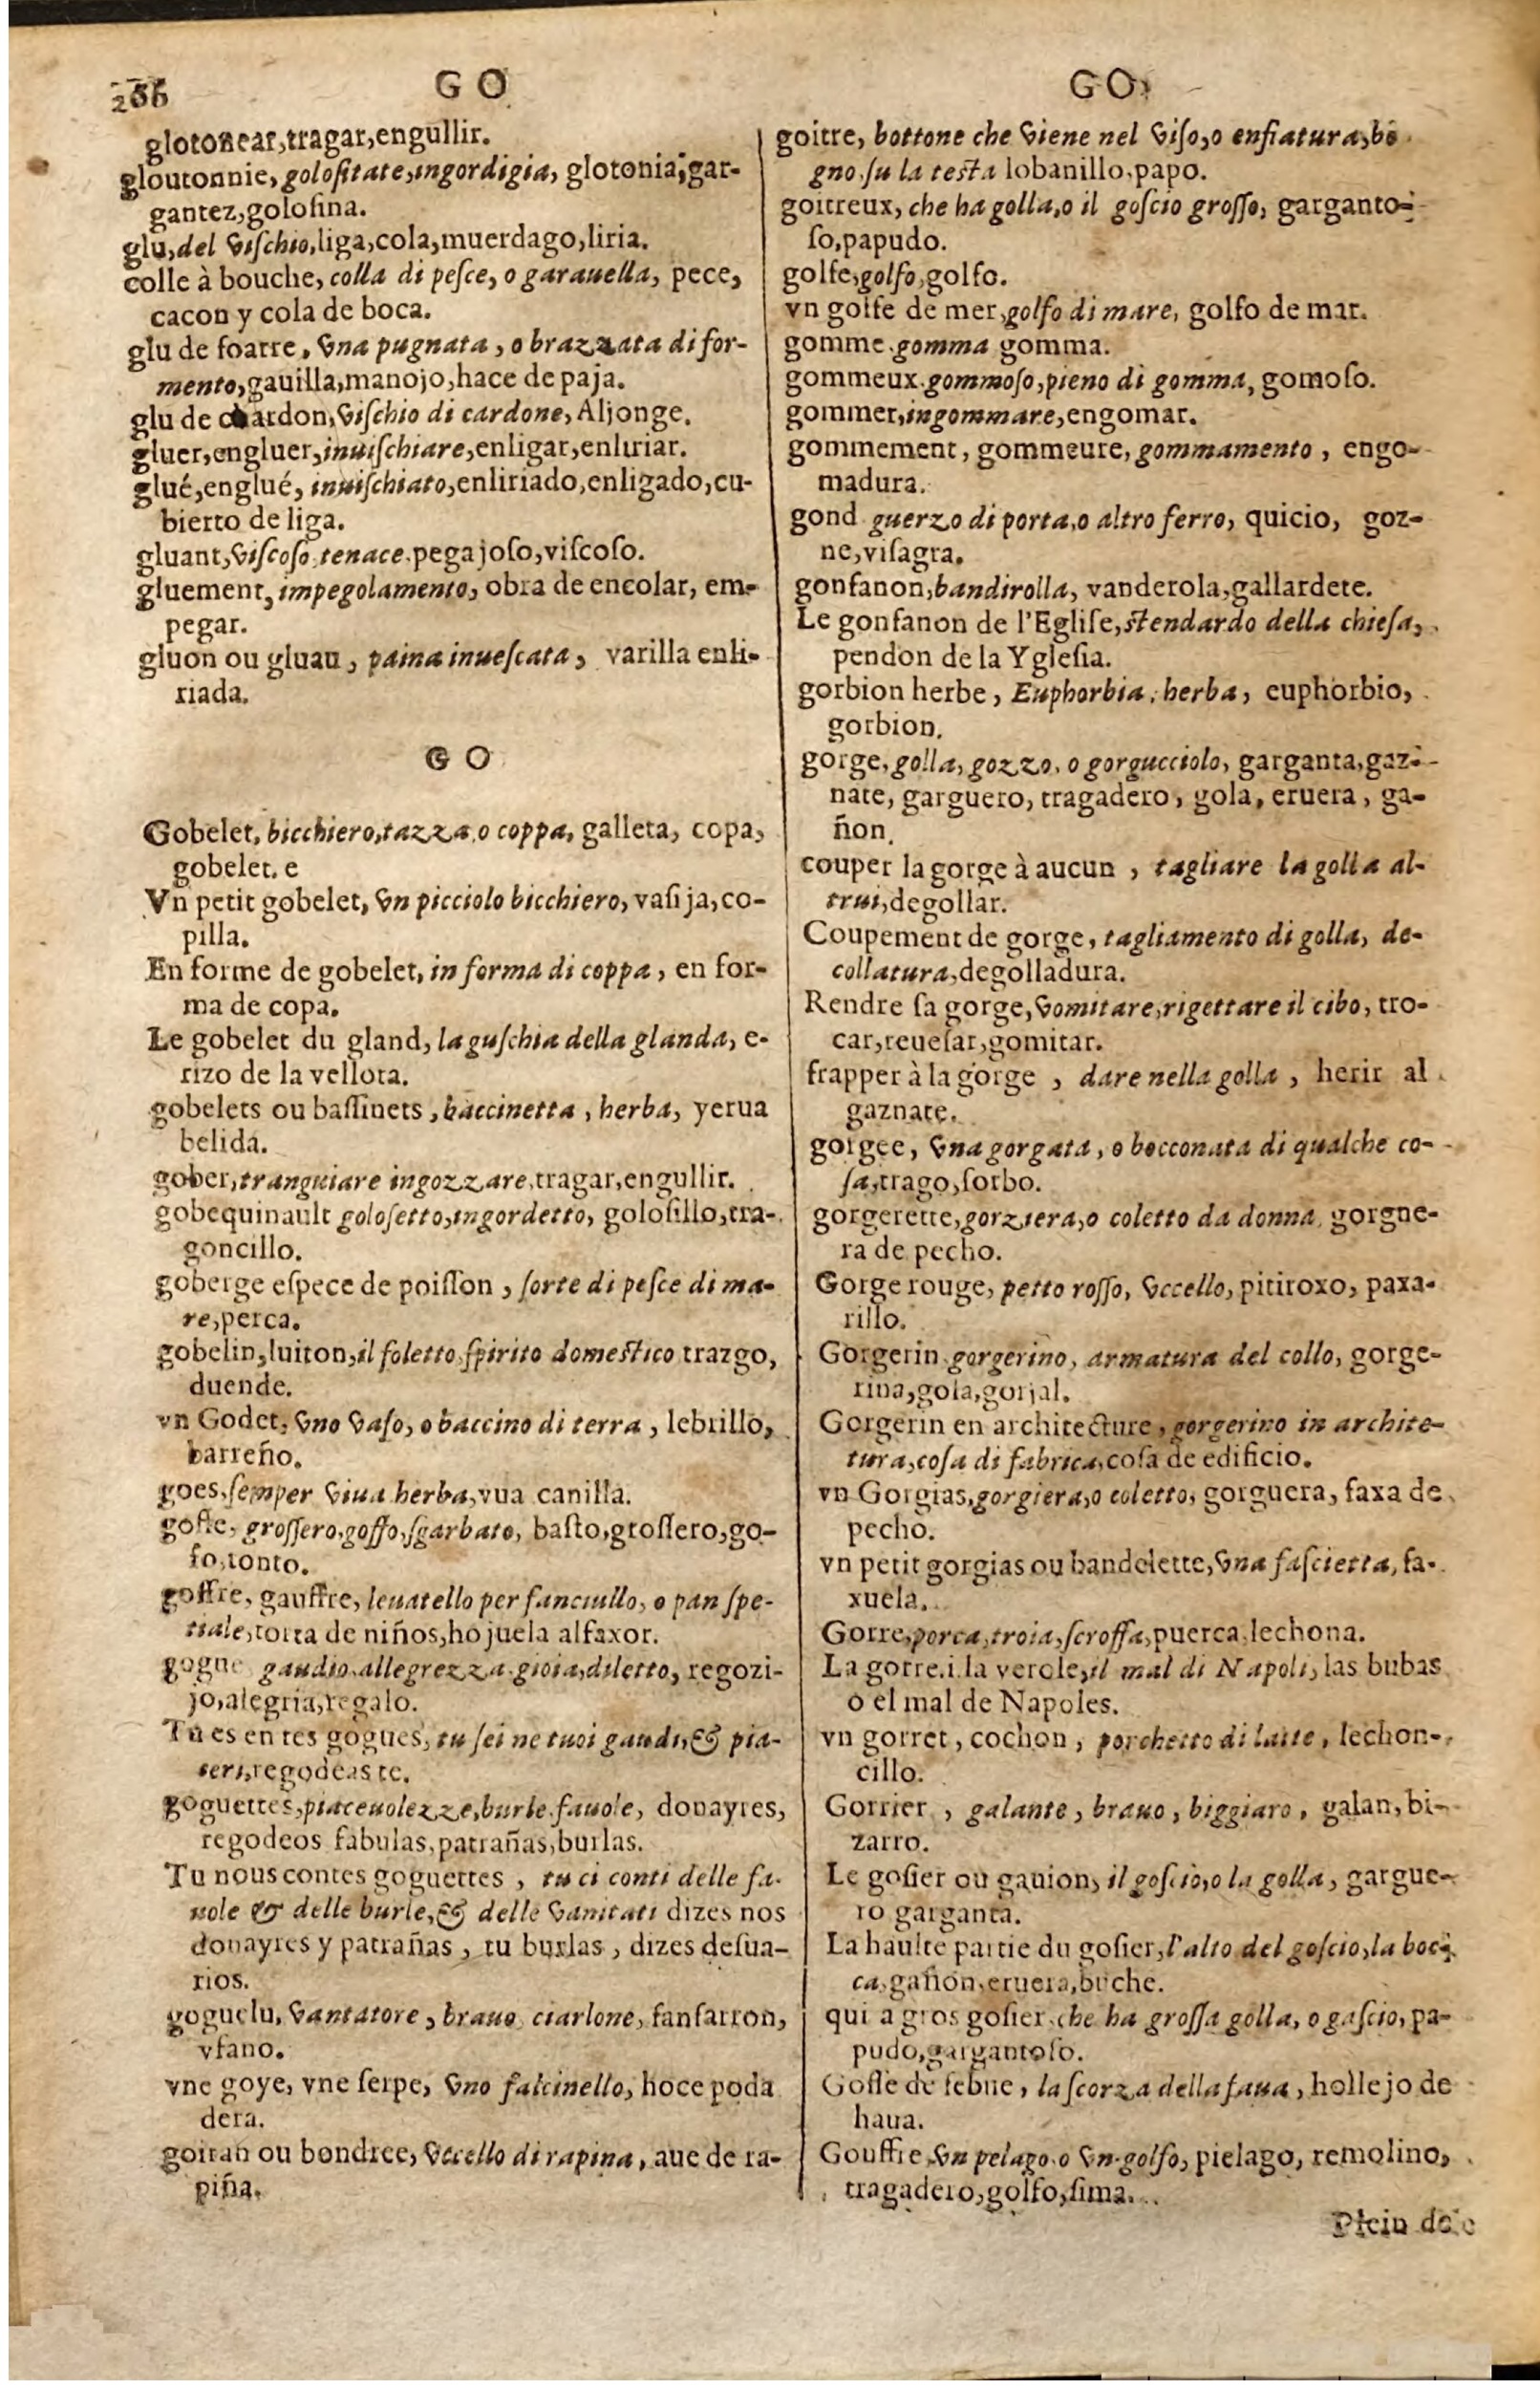 266 GO
glotonear,tragar,engullir.
gloutonnie, golositate,ingordigia, glotonia,gar-
gantez,golosina.
glu,del vischio,liga,cola,muerdago,liria.
colle à bouche, colla di pesce, o garauella, pece,
cacon y cola de boca.
glu de foarre, vna pugnata, o brazzata di for-
mento,gauilla,manojo,hace de paja.
glu de chardon,vischio di cardone, Aljonge.
gluer,engluer,inuischiare,enligar,enliriar.
glué,englué, inuischiato,enliriado,enligado,cu-
bierto de liga.
gluant,viscoso tenace pegajoso,viscoso.
gluement, impegolamento, obra de encolar, em-
pegar.
gluon ou gluau, paina inuescata, varilla enli-
riada.
GO
Gobelet, bicchiero,tazza,o coppa, galleta, copa,
gobelet. e
Vn petit gobelet, vn picciolo bicchiero, vasija,co-
pilla.
En forme de gobelet, in forma di coppa, en for-
ma de copa.
Le gobelet du gland, la guschia della glanda, e-
rizo de la vellota.
gobelets ou bassinets, baccinetta, herba, yerua
belida.
gober,tranguiare ingozzare,tragar,engullir.
gobequinault golosetto,ingordetto, golosillo,tra-
goncillo.
goberge espece de poisson, sorte di pesce di ma-
re,perca.
gobelin,luiton,il foletto,spirito domestico trazgo,
duende.
vn Godet, vno vaso, o baccino di terra, lebrillo,
barreño.
goes,semper viua herba,vua canilla.
goffe, grossero,goffo,sgarbato, basto,grossero,go-
fo,tonto.
goffre, gauffre, leuatello per fanciullo, o pan spe-
tiale,torta de niños,hojuela alfaxor.
gogue gaudio,allegrezza,gioia,diletto, regozi-
jo,alegria,regalo.
Tu es en tes gogues, tu sei ne tuoi gaudi,& pia-
seri,regodeas te.
goguettes,piaceuolezze,burle,fauole, donayres,
regodeos fabulas,patrañas,burlas.
Tu nous contes goguettes, tu ci conti delle fa-
uole & delle burle,& delle vanitati dizes nos
donayres y patrañas, tu burlas, dizes desua-
rios.
goguelu, vantatore, brauo, ciarlone, fanfarron,
vfano.
vne goye, vne serpe, vno falcinello, hoce poda
dera.
goiran ou bondree, vccello di rapina, aue de ra-
piña.
GO
goitre, bottone che viene nel viso,o enfiatura,bo
gno su la testa lobanillo,papo.
goitreux, che ha golla,o il goscio grosso, garganto-
so,papudo.
golfe,golfo,golfo.
vn golfe de mer,golfo di mare, golfo de mar.
gomme gomma gomma.
gommeux gommoso,pieno di gomma, gomoso.
gommer,ingommare,engomar.
gommement, gommeure, gommamento, engo-
madura.
gond guerzo di porta,o altro ferro, quicio, goz-
ne,visagra.
gonfanon,bandirolla, vanderola,gallardete.
Le gonfanon de l'Eglise,stendardo della chiesa,
pendon de la Yglesia.
gorbion herbe, Euphorbia, herba, euphorbio,
gorbion.
gorge, golla,gozzo, o gorgucciolo, garganta,gaz-
nate, garguero, tragadero, gola, eruera, ga-
ñon.
couper la gorge à aucun, tagliare la golla al-
trui,degollar.
Coupement de gorge, tagliamento di golla, de-
collatura,degolladura.
Rendre sa gorge,vomitare,rigettare il cibo, tro-
car,reuesar,gomitar.
frapper à la gorge, dare nella golla, herir al
gaznate.
gorgee, vna gorgata, o bocconata di qualche co-
sa,trago,sorbo.
gorgerette,gorziera,o coletto da donna, gorgue-
ra de pecho.
Gorge rouge, petto rosso, vccello, pitiroxo, paxa-
rillo.
Gorgerin gorgerino, armatura del collo, gorge-
rina,gola,gorjal.
Gorgerin en architecture, gorgerino in archite-
tura,cosa di fabrica,cosa de edificio.
vn Gorgias,gorgiera,o coletto, gorguera, faxa de
pecho.
vn petit gorgias ou bandelette,vna fascietta, fa-
xuela.
Gorre,porca,troia,scroffa,puerca,lechona.
La gorre.i.la verole,il mal di Napoli, las bubas
o el mal de Napoles.
vn gorret, cochon, porchetto di latte, lechon-
cillo.
Gorrier, galante, brauo, biggiaro, galan, bi-
zarro.
Le gosier ou gauion, il goscio,o la golla, gargue-
ro garganta.
La haulte partie du gosier,l'alto del goscio,la boc-
ca,gañon,eruera,buche.
qui a gros gosier,che ha grossa golla, o gascio, pa-
pudo,gargantoso.
Gosse de febue, la scorza della faua, hollejo de
haua.
Gouffre vn pelago o vn golfo, pielago, remolino,
tragadero,golfo,sima.
Plein de